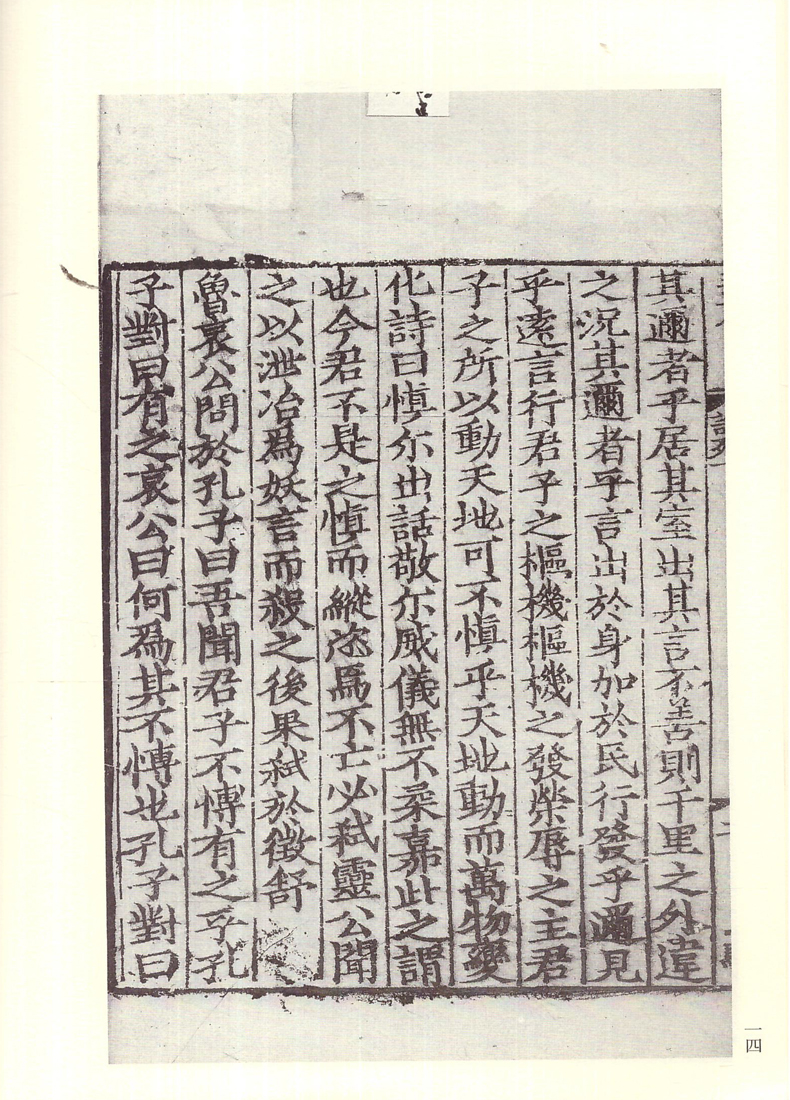 其邇者乎居其室出其言不善則千里之外違
之況其邇者乎言出於身加於民行發乎邇見
乎遠言行君子之樞機樞機之發榮辱之主君
子之所以動天地可不慎乎天地動而萬物變
化詩曰慎尒出話敬尒威儀無不柔嘉此之謂
也今君不是之慎而縱恣焉不亡必弑靈公聞
之以泄冶爲妖言而殺之後果弑於徵舒
魯哀公問於孔子曰吾聞君子不愽有之乎孔
子對曰有之哀公曰何爲其不愽也孔子對曰
一四